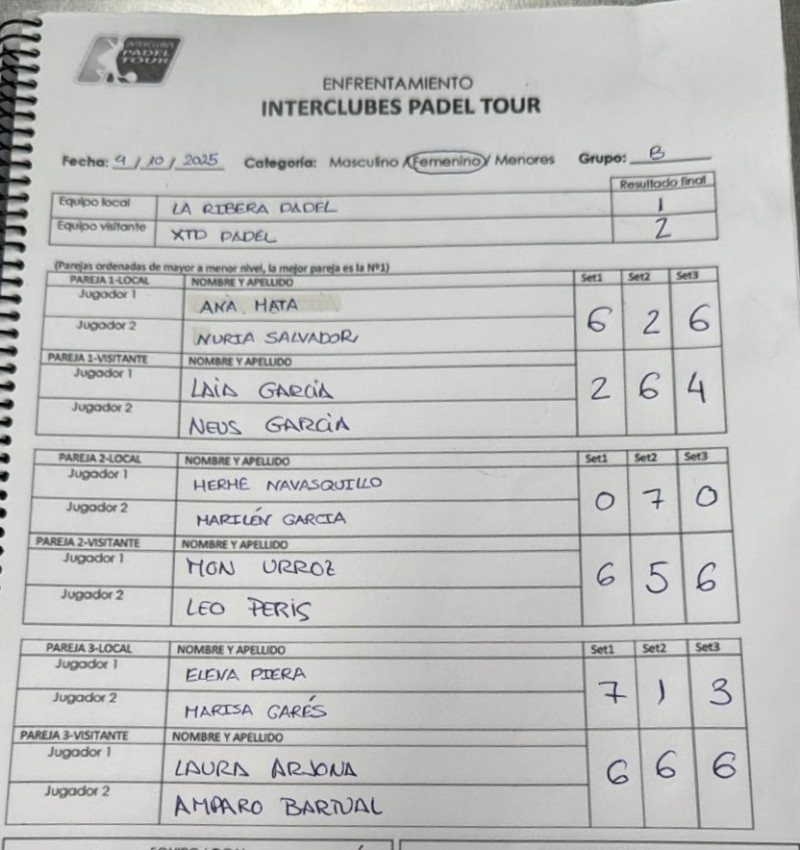 INTERCLUBES
PADEL
TOUR
ENFRENTAMIENTO
INTERCLUBES PADEL TOUR
Fecha: 9 / 10 / 2025 Categoría: Masculino / Femenino / Menores Grupo: B
Resultado final
Equipo local LA RIBERA PADEL 1
Equipo visitante XTD PADEL 2
(Parejas ordenadas de mayor a menor nivel, la mejor pareja es la Nº1)
PAREJA 1-LOCAL NOMBRE Y APELLIDO Set1 Set2 Set3
Jugador 1 ANA MATA
Jugador 2 NURIA SALVADOR
6 2 6
PAREJA 1-VISITANTE NOMBRE Y APELLIDO
Jugador 1 LAIA GARCIA
Jugador 2 NEUS GARCIA
2 6 4
PAREJA 2-LOCAL NOMBRE Y APELLIDO Set1 Set2 Set3
Jugador 1 HERME NAVASQUILLO
Jugador 2 MARILÉN GARCIA
0 7 0
PAREJA 2-VISITANTE NOMBRE Y APELLIDO
Jugador 1 MON URROZ
Jugador 2 LEO PERIS
6 5 6
PAREJA 3-LOCAL NOMBRE Y APELLIDO Set1 Set2 Set3
Jugador 1 ELENA PIERA
Jugador 2 MARISA GARÉS
7 1 3
PAREJA 3-VISITANTE NOMBRE Y APELLIDO
Jugador 1 LAURA ARJONA
Jugador 2 AMPARO BARTUAL
6 6 6